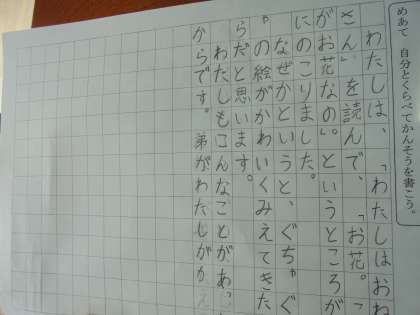 めあて 自分とくらべてかんそうを書こう。
わたしは、「わたしはおね
さん」を読んで、「お花。「
がお花なの。」というところが
にのこりました。
なぜかというと、ぐちゃぐ
ゃの絵がかわいくみえてきた
らだと思います。
わたしもこんなことがあっ
からです。弟がわたしががん